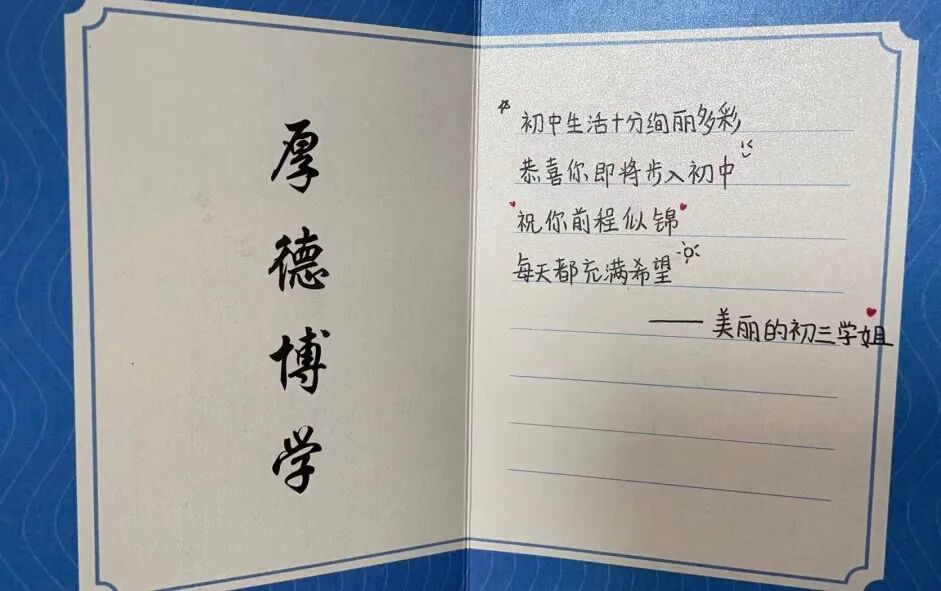 厚德博学
初中生活十分绚丽多彩
恭喜你即将步入初中
祝你前程似锦
每天都充满希望
——美丽的初三学姐